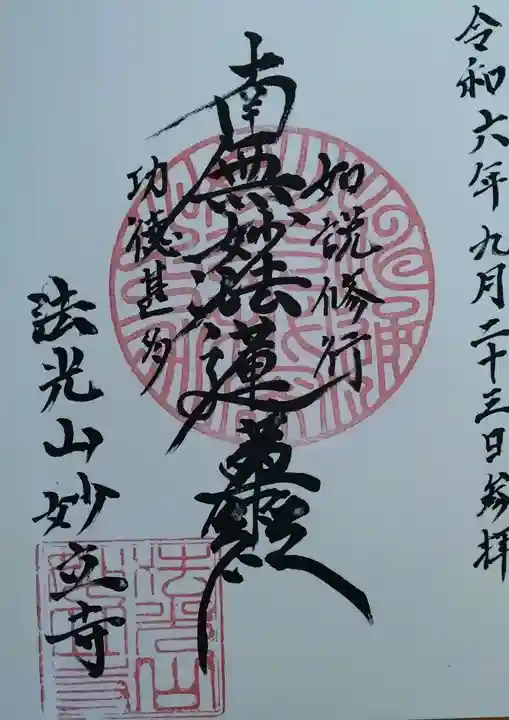 令和六年九月二十三日参拝
如説修行
南無妙法蓮華經
功徳甚多
法光山妙立寺